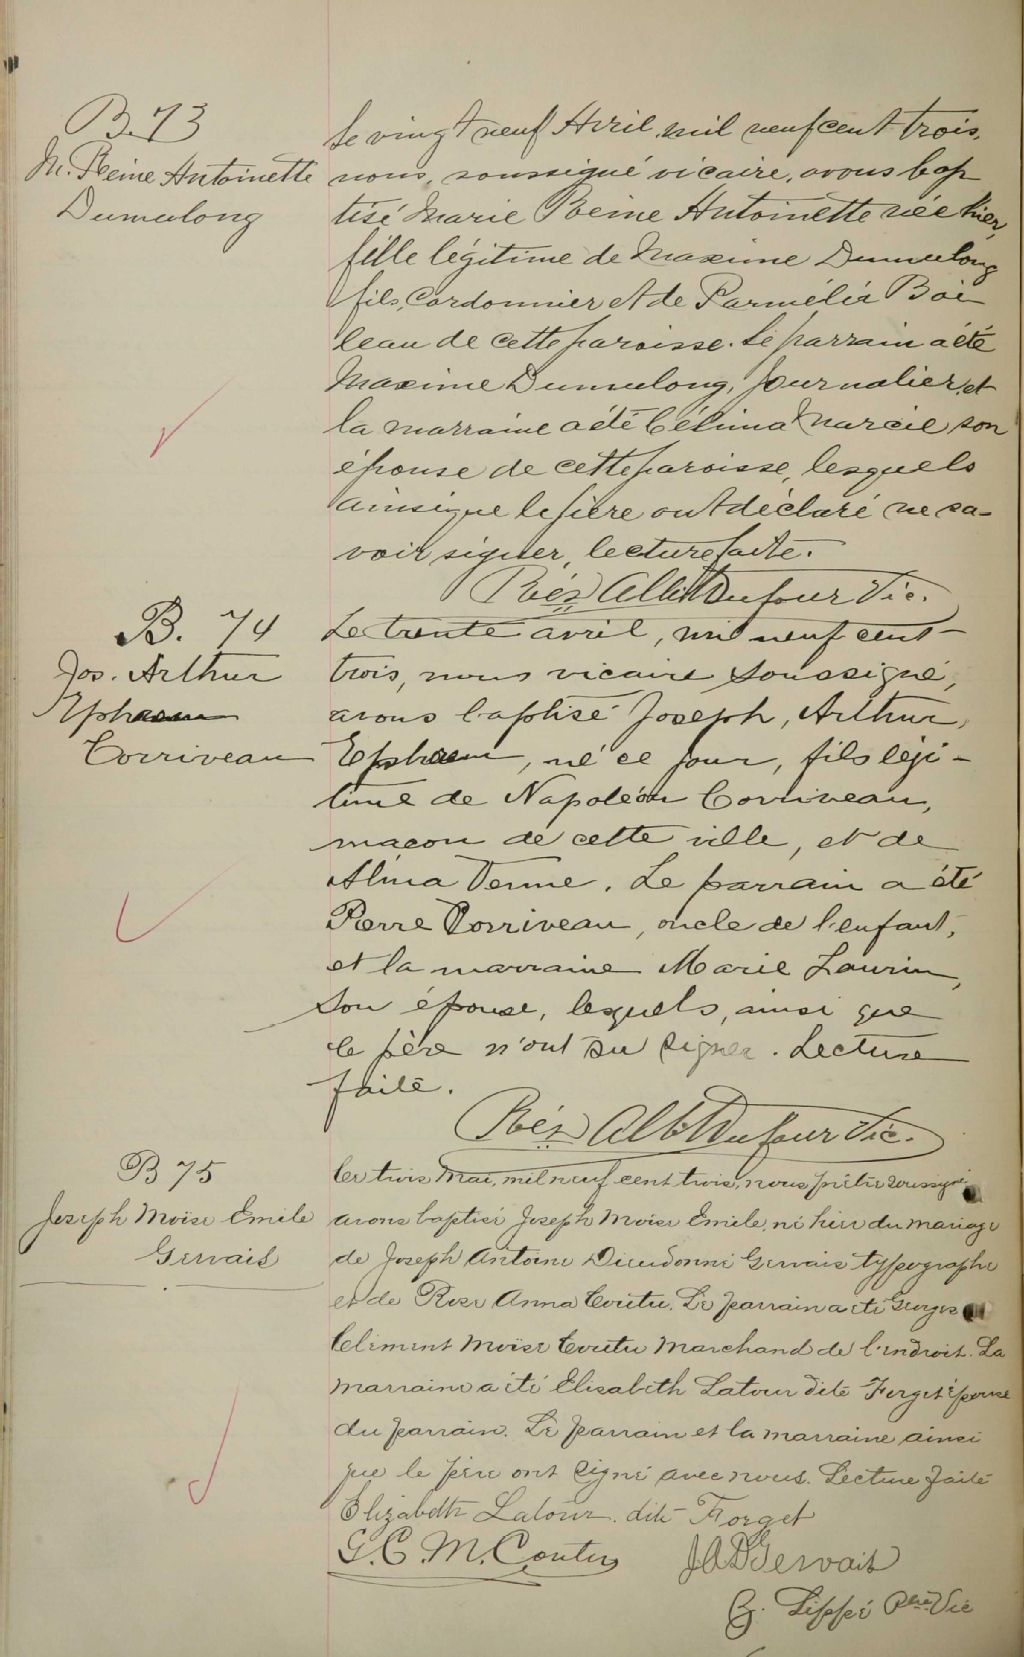 B. 73
M. Reine Antoinette
Dumulong
Le vingt neuf Avril mil neuf cent trois,
nous, soussigné vicaire, avons bap
tisé Marie Reine Antoinette née hier,
fille légitime de Maxime Dumulong
fils, Cordonnier et de Parmélia Boi-
leau de cette paroisse. Le parrain a été
Maxime Dumulong, Journalier et
la marraine a été Célima Marcil son
épouse de cette paroisse, lesquels
ainsi que le père ont déclaré ne sa-
voir signer, lecture faite.
Albt Dufour Vic.
B. 74
Jos. Arthur
Ephrem
Corriveau
Le trente avril, mil neuf cent
trois, nous vicaire soussigné,
avons baptisé Joseph, Arthur,
Ephrem, né ce jour, fils légi-
time de Napoléon Corriveau,
maçon de cette ville, et de
Alma Venne. Le parrain a été
Pierre Corriveau, oncle de l'enfant,
et la marraine Marie Laurin,
son épouse, lesquels, ainsi que
le père n'ont su signer. Lecture
faite.
Albt Dufour Vic.
B 75
Joseph Moïse Emile
Gervais
Le trois Mai, mil neuf cent trois, nous prêtre soussigné
avons baptisé Joseph Moïse Emile, né hier du mariage
de Joseph Antoine Dieudonné Gervais typographe
et de Rose Anna Coutu. Le parrain a été Georges
Clément Moïse Coutu Marchand de l'endroit. La
marraine a été Elisabeth Latour dite Forget épouse
du parrain. Le parrain et la marraine ainsi
que le père ont signé avec nous. Lecture faite
Elizabeth Latour dite Forget
G. C. M. Coutu J A D Gervais
Lippé Ptre Vic